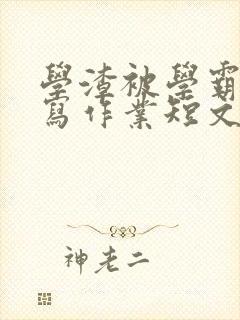 學渣被學霸
寫作業短文
神老二